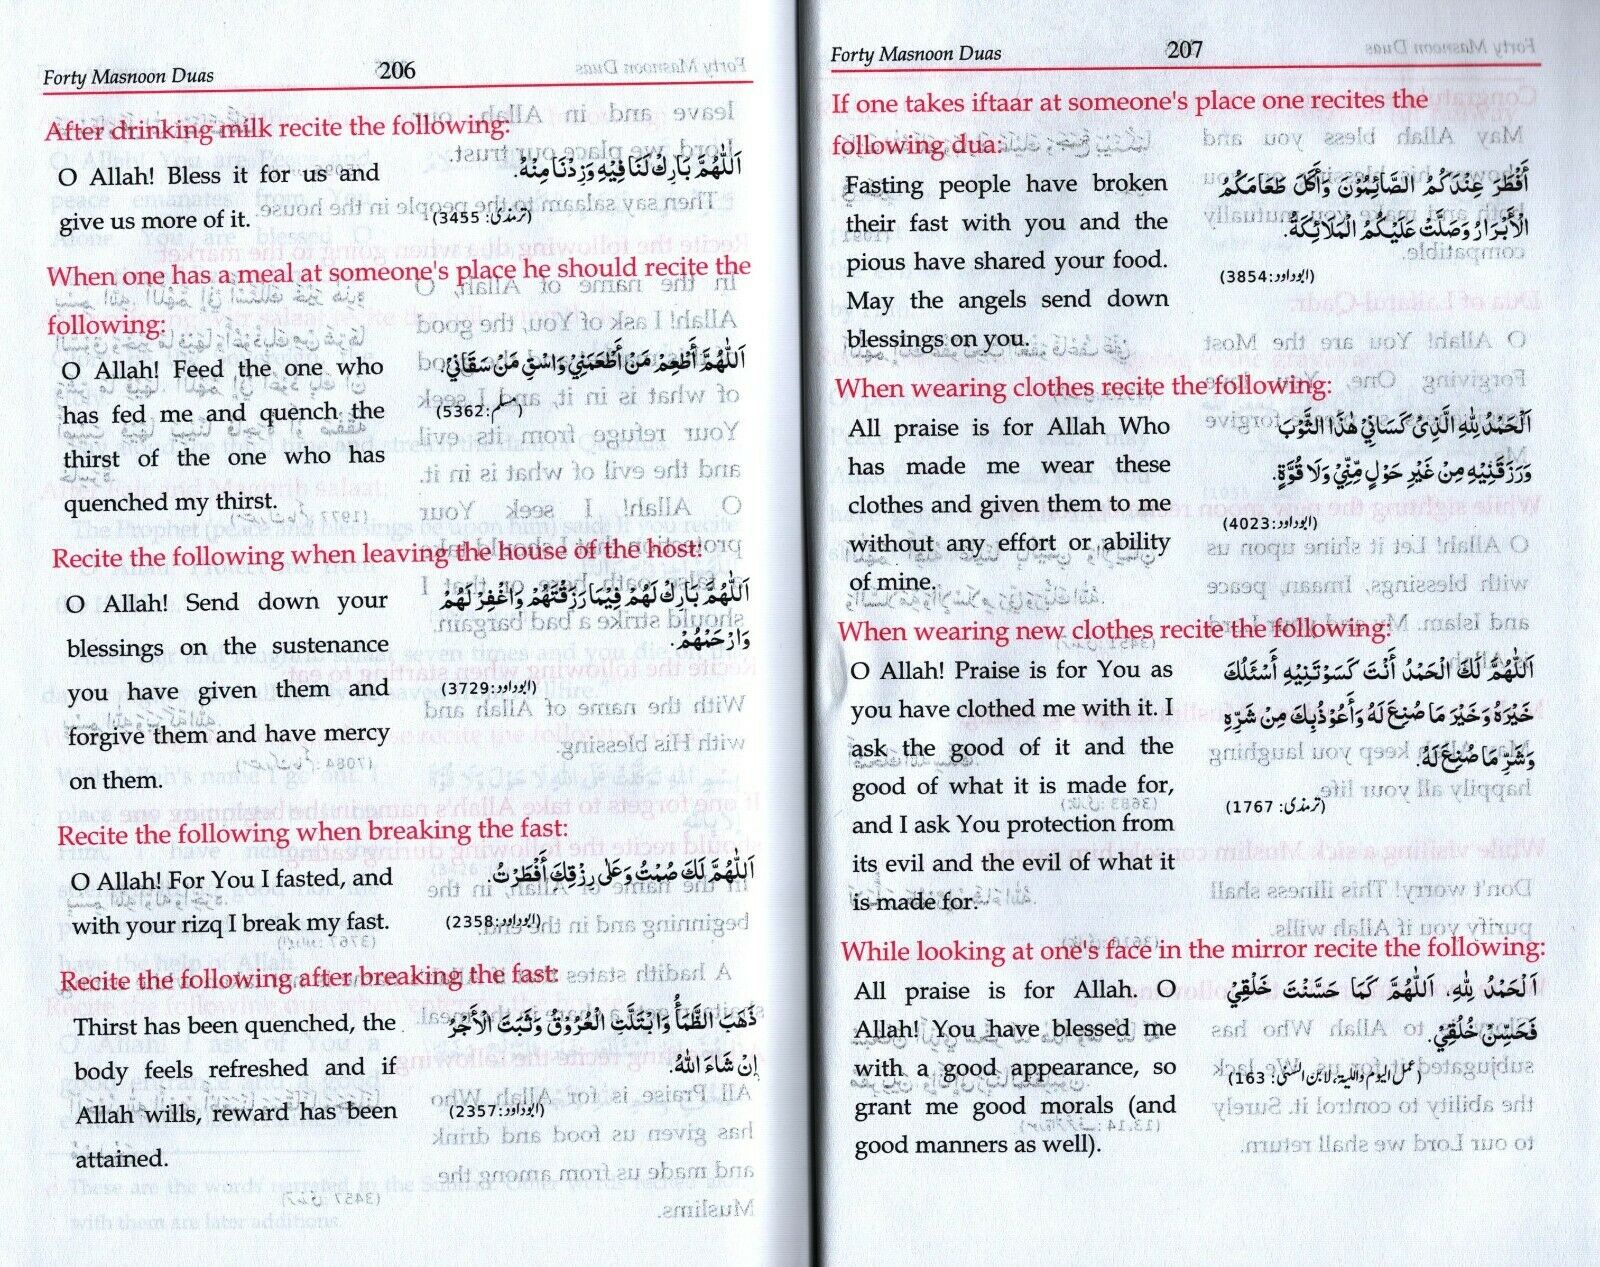 Forty Masnoon Duas 206
After drinking milk recite the following:
O Allah! Bless it for us and
give us more of it.
اَللّٰهُمَّ بَارِكْ لَنَا فِيْهِ وَزِدْنَا مِنْهُ.
(ترمذی: 3455)
When one has a meal at someone's place he should recite the
following:
O Allah! Feed the one who
has fed me and quench the
thirst of the one who has
quenched my thirst.
اَللّٰهُمَّ أَطْعِمْ مَنْ أَطْعَمَنِيْ وَاسْقِ مَنْ سَقَانِيْ
(مسلم:5362)
Recite the following when leaving the house of the host:
O Allah! Send down your
blessings on the sustenance
you have given them and
forgive them and have mercy
on them.
اَللّٰهُمَّ بَارِكْ لَهُمْ فِيْمَا رَزَقْتَهُمْ وَاغْفِرْ لَهُمْ
وَارْحَمْهُمْ.
(ابوداود:3729)
Recite the following when breaking the fast:
O Allah! For You I fasted, and
with your rizq I break my fast.
اَللّٰهُمَّ لَكَ صُمْتُ وَعَلٰى رِزْقِكَ أَفْطَرْتُ.
(ابوداود:2358)
Recite the following after breaking the fast:
Thirst has been quenched, the
body feels refreshed and if
Allah wills, reward has been
attained.
ذَهَبَ الظَّمَأُ وَابْتَلَّتِ الْعُرُوْقُ وَثَبَتَ الْأَجْرُ
إِنْ شَاءَ اللّٰهُ.
(ابوداود:2357)
Forty Masnoon Duas 207
If one takes iftaar at someone's place one recites the
following dua:
Fasting people have broken
their fast with you and the
pious have shared your food.
May the angels send down
blessings on you.
أَفْطَرَ عِنْدَكُمُ الصَّائِمُوْنَ وَأَكَلَ طَعَامَكُمُ
الْأَبْرَارُ وَصَلَّتْ عَلَيْكُمُ الْمَلَائِكَةُ.
(ابوداود:3854)
When wearing clothes recite the following:
All praise is for Allah Who
has made me wear these
clothes and given them to me
without any effort or ability
of mine.
اَلْحَمْدُ لِلّٰهِ الَّذِيْ كَسَانِيْ هٰذَا الثَّوْبَ
وَرَزَقَنِيْهِ مِنْ غَيْرِ حَوْلٍ مِّنِّيْ وَلَا قُوَّةٍ.
(ابوداود:4023)
When wearing new clothes recite the following:
O Allah! Praise is for You as
you have clothed me with it. I
ask the good of it and the
good of what it is made for,
and I ask You protection from
its evil and the evil of what it
is made for.
اَللّٰهُمَّ لَكَ الْحَمْدُ أَنْتَ كَسَوْتَنِيْهِ أَسْئَلُكَ
خَيْرَهُ وَخَيْرَ مَا صُنِعَ لَهُ وَأَعُوْذُبِكَ مِنْ شَرِّهِ
وَشَرِّ مَا صُنِعَ لَهُ.
(ترمذی: 1767)
While looking at one's face in the mirror recite the following:
All praise is for Allah. O
Allah! You have blessed me
with a good appearance, so
grant me good morals (and
good manners as well).
اَلْحَمْدُ لِلّٰهِ، اَللّٰهُمَّ كَمَا حَسَّنْتَ خَلْقِيْ
فَحَسِّنْ خُلُقِيْ.
(عمل الیوم واللیة، لابن السنی: 163)